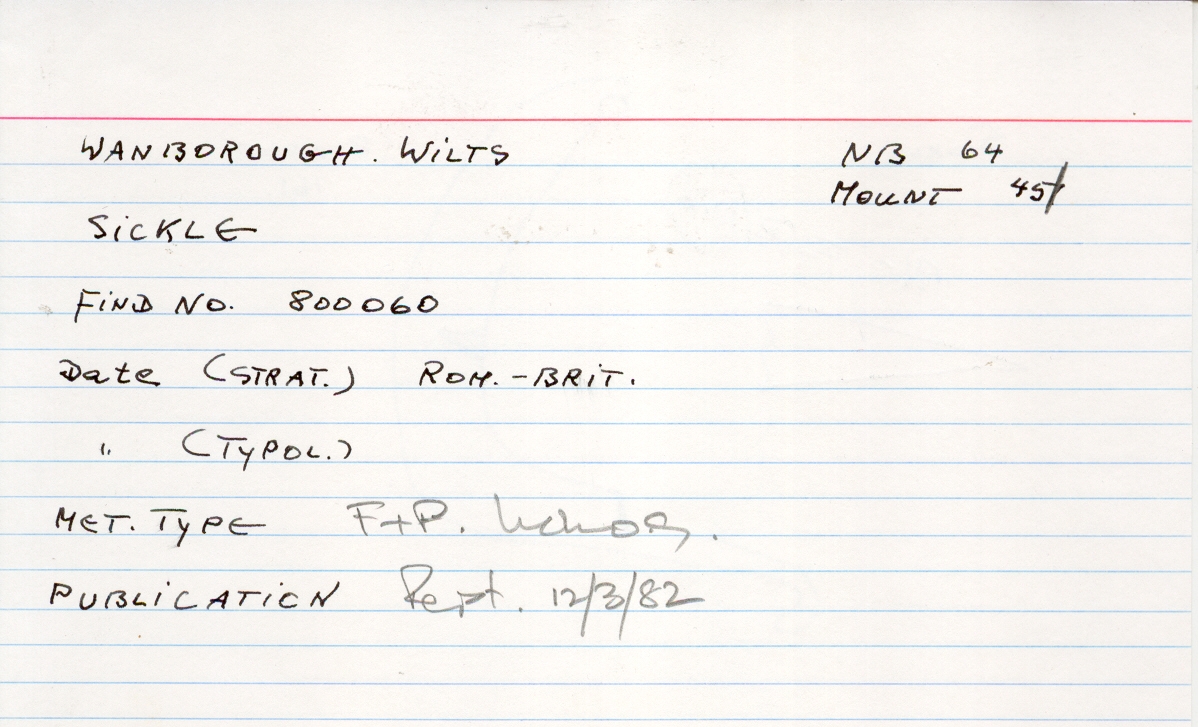 WANBOROUGH. WILTS NB 64
MOUNT 45/
SICKLE
FIND NO. 800060
Date (STRAT.) ROM.-BRIT.
" (TYPOL.)
MET. TYPE F+P.
PUBLICATION Rept. 12/3/82